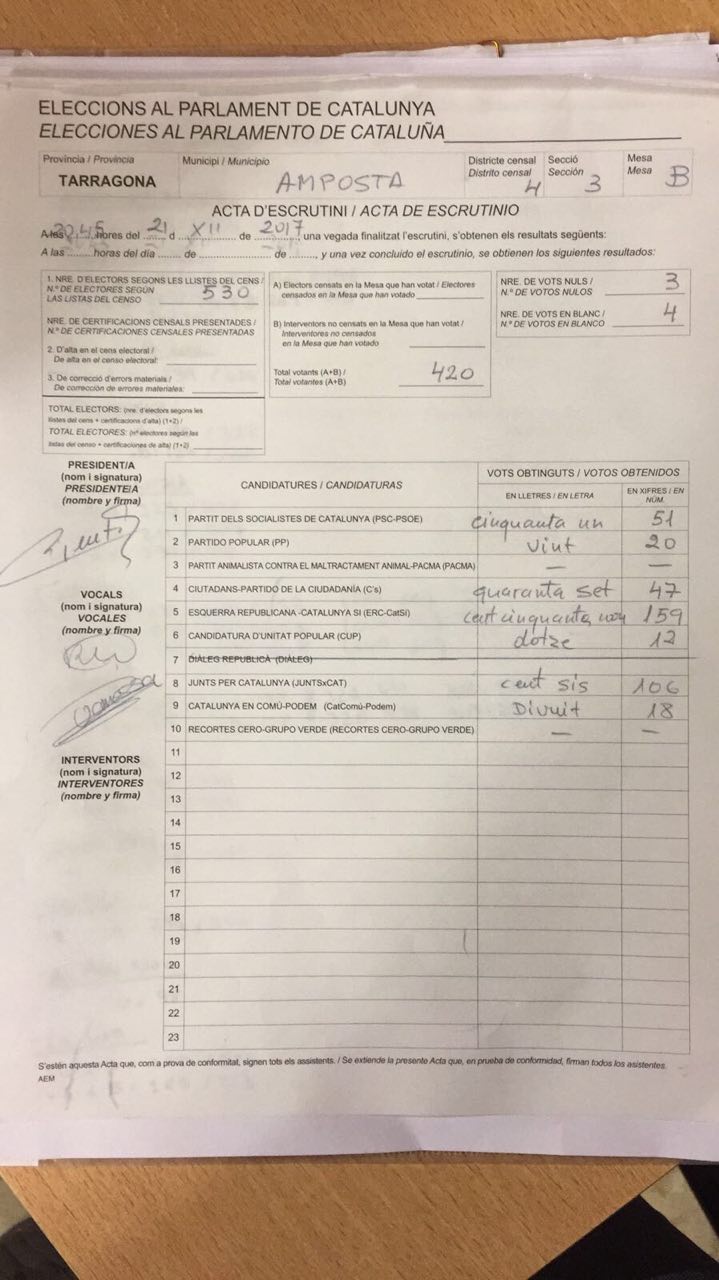 ELECCIONS AL PARLAMENT DE CATALUNYA
ELECCIONES AL PARLAMENTO DE CATALUÑA
Provincia / Provincia Municipi / Municipio Districte censal Secció Mesa
Distrito censal Sección Mesa
TARRAGONA AMPOSTA 4 3 B
ACTA D'ESCRUTINI / ACTA DE ESCRUTINIO
A les 20,45 hores del 21 d XII de 2017, una vegada finalitzat l'escrutini, s'obtenen els resultats següents:
A las ........ horas del día ...... de .............. de ........, y una vez concluido el escrutinio, se obtienen los siguientes resultados:
1. NRE. D'ELECTORS SEGONS LES LLISTES DEL CENS /
N.º DE ELECTORES SEGÚN
LAS LISTAS DEL CENSO 530
NRE. DE CERTIFICACIONS CENSALS PRESENTADES /
N.º DE CERTIFICACIONES CENSALES PRESENTADAS
2. D'alta en el cens electoral /
De alta en el censo electoral:
3. De correcció d'errors materials /
De corrección de errores materiales:
TOTAL ELECTORS: (nre. d'electors segons les
llistes del cens + certificacions d'alta) (1+2) /
TOTAL ELECTORES: (nº electores según las
listas del censo + certificaciones de alta) (1+2)
A) Electors censats en la Mesa que han votat / Electores
censados en la Mesa que han votado
B) Interventors no censats en la Mesa que han votat /
Interventores no censados
en la Mesa que han votado
Total votants (A+B) /
Total votantes (A+B) 420
NRE. DE VOTS NULS /
N.º DE VOTOS NULOS 3
NRE. DE VOTS EN BLANC /
N.º DE VOTOS EN BLANCO 4
PRESIDENT/A
(nom i signatura)
PRESIDENTE/A
(nombre y firma)
VOCALS
(nom i signatura)
VOCALES
(nombre y firma)
INTERVENTORS
(nom i signatura)
INTERVENTORES
(nombre y firma)
CANDIDATURES / CANDIDATURAS VOTS OBTINGUTS / VOTOS OBTENIDOS
EN LLETRES / EN LETRA EN XIFRES / EN NÚM.
1 PARTIT DELS SOCIALISTES DE CATALUNYA (PSC-PSOE) cinquanta un 51
2 PARTIDO POPULAR (PP) vint 20
3 PARTIT ANIMALISTA CONTRA EL MALTRACTAMENT ANIMAL-PACMA (PACMA) — —
4 CIUTADANS-PARTIDO DE LA CIUDADANÍA (C's) quaranta set 47
5 ESQUERRA REPUBLICANA -CATALUNYA SÍ (ERC-CatSí) cent cinquanta nou 159
6 CANDIDATURA D'UNITAT POPULAR (CUP) dotze 12
7 DIÀLEG REPUBLICÀ (DIÀLEG)
8 JUNTS PER CATALUNYA (JUNTSxCAT) cent sis 106
9 CATALUNYA EN COMÚ-PODEM (CatComú-Podem) Divuit 18
10 RECORTES CERO-GRUPO VERDE (RECORTES CERO-GRUPO VERDE) — —
11
12
13
14
15
16
17
18
19
20
21
22
23
S'estén aquesta Acta que, com a prova de conformitat, signen tots els assistents. / Se extiende la presente Acta que, en prueba de conformidad, firman todos los asistentes.
AEM